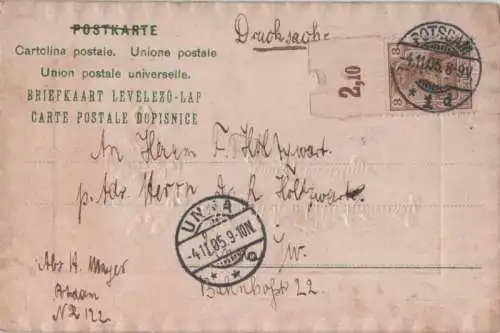 POSTKARTE
Drucksache
Cartolina postale. Unione postale
Union postale universelle.
BRIEFKAART LEVELEZÖ-LAP
CARTE POSTALE DOPISNICE
2,10
3 3
POTSDAM
4.11.05.8-9V
* 1 d
An Herrn F. Höltzwart
p. Adr. Herrn
UNNA
-4.11.05.9-10N
* * b
i/W.
Bahnhofst 22.
Abs. H. Mayer
No 122